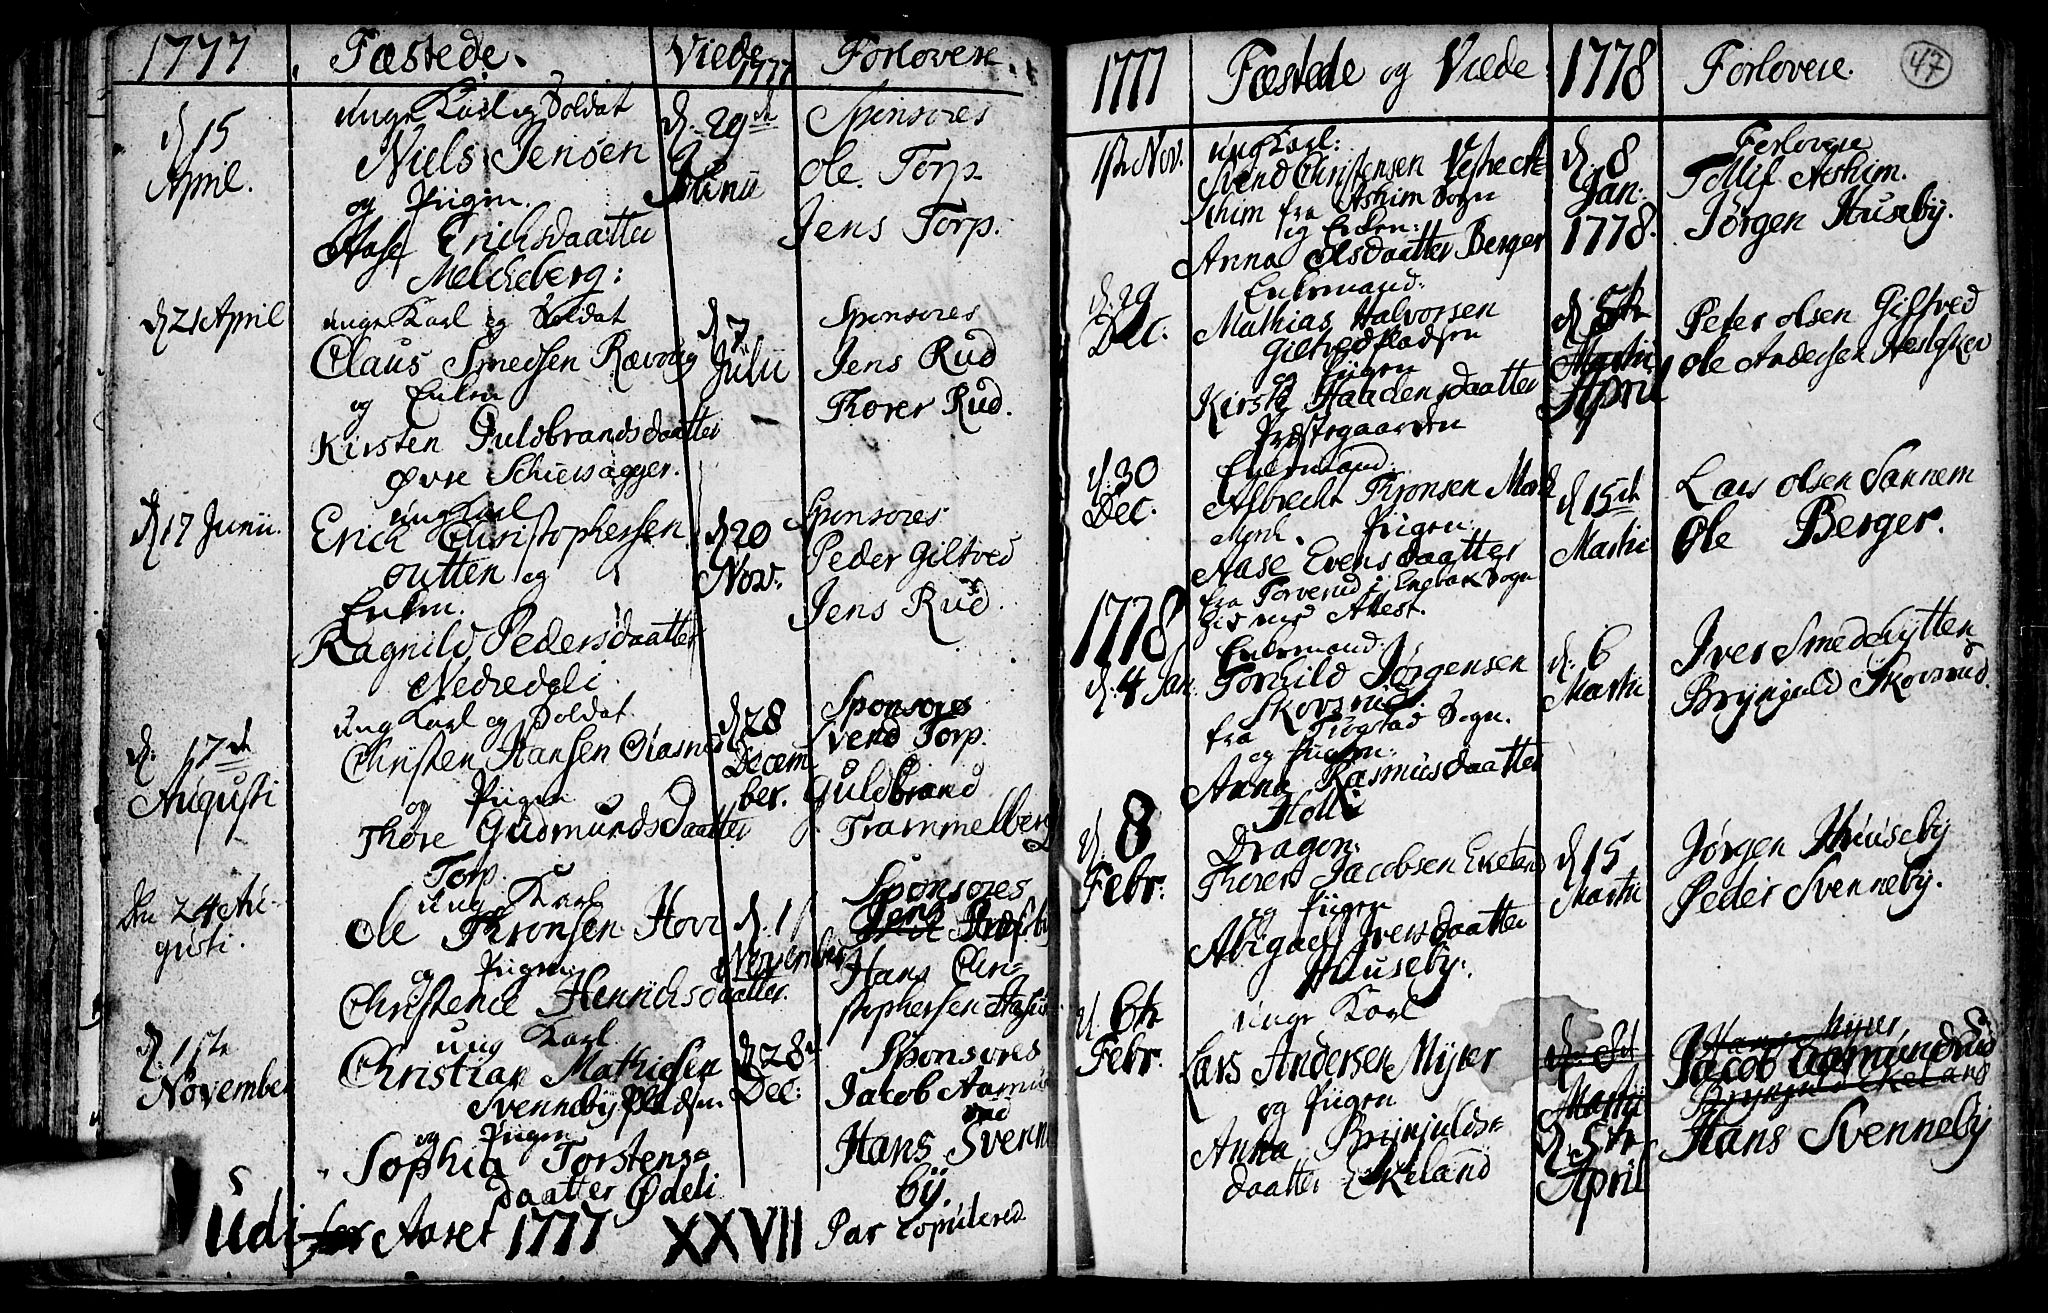 1777
Fæstede.
Viede
1777
Forlovere.
d. 15
April.
unge Karl og Soldat
Niels Jensen
og Pigen.
Aase Erichsdaatter
Melcheberg:
d. 29de
Junii
Sponsores
Ole Torp
Jens Torp.
d. 21 April
unge Karl og Soldat
Claus Smedsen Rævnig
og Enken
Kirsten Guldbrandsdaatter
Øvre Schiersagger.
d. 7
Julii
Sponsores
Jens Rud
Thorer Rud.
d. 17 Junii.
ung Karl
Erich Christophersen
outten og
Enken.
Ragnild Pedersdaatter
Nedredeli.
d. 20
Nov.
Sponsores
Peder Giltved
Jens Rud.
d. 17de
Augusti
ung Karl og Soldat
Christen Hansen
og Pigen
Thore Gudmundsdaatter
Torp.
d. 28
Decem
ber.
Sponsores
Svend Torp.
Guldbrand
Trammelberg
den 24 Au-
gusti.
ung Karl
Ole Thronsen Hovr
og Pigen
Christence Henrichsdaatter.
d. 1
November
Sponsores
Jens
Hans Chri-
stophersen
d. 1ste
November
ung Karl
Christian Mathisen
Svennebyepladsen
og Pigen
Sophia Torstens-
daatter Ødeli
d. 28de
Dec:
Sponsores
Jacob Aamund
rud
Hans Svenne
by.
Udi for Aaret 1777 XXVII Par Copulered
1777
Fæstede og Viede
1778
Forlovere.
47
1ste Nov.
ung Karl:
Svend Christensen Vestech-
schim fra Aschim Sogn
og Enken:
Anna Olsdaatter Berger
d. 8
Jan:
1778.
Forlovere
Tollif Aschim.
Jørgen Huseby.
d. 29
Dec.
Enkemand:
Mathias Halvorsen
Giltvedpladsen
og Pigen
Kirsti Haagensdaatter
Præstegaarden
d. 5te
Martii
April
Peter Olsen Giltved
Ole Andersen
d. 30
Dec.
Enkemand.
Albrecht Thronsen
Pigen:
Aase Evensdaatter
fra Torverud i Enebak Sogn
Attest.
d. 15de
Martii
Lars Olsen Sannem
Ole Berger.
1778
d. 4 Jan.
Enkemand:
Torkild Jørgensen
Skovsrud
fra Trygstad Sogn.
og Pigen:
Anna Rasmusdaatter
Holli
d. 6
Martii
Iver Smedehytten
Brynjuld Skovsrud.
d. 8
Febr.
Dragon:
Thorer Jacobsen Ekeland
og Pigen
Abigael Iversdaatter
Huuseby:
d. 15
Martii
Jørgen Huuseby
Peder Svenneby.
d. 6te
Febr.
unge Karl
Lars Andersen Myrer
og Pigen
Anna Brynjulds-
daatter Ekeland
Martii
d. 5te
April
Hans Myrer
Jacob Aamundrud
Brynjuld Ekeland
Hans Svenneby